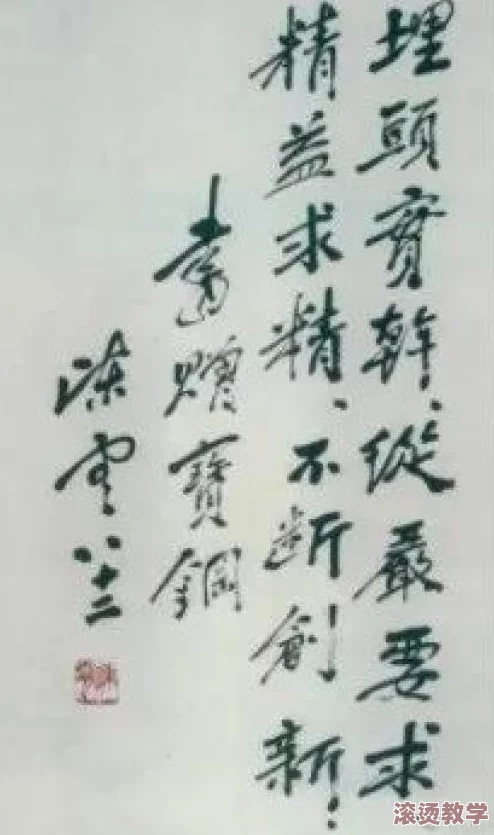 埋頭實幹、從嚴要求
精益求精、不断創新！
書贈寶鋼
陳雲八十二
滚烫教学